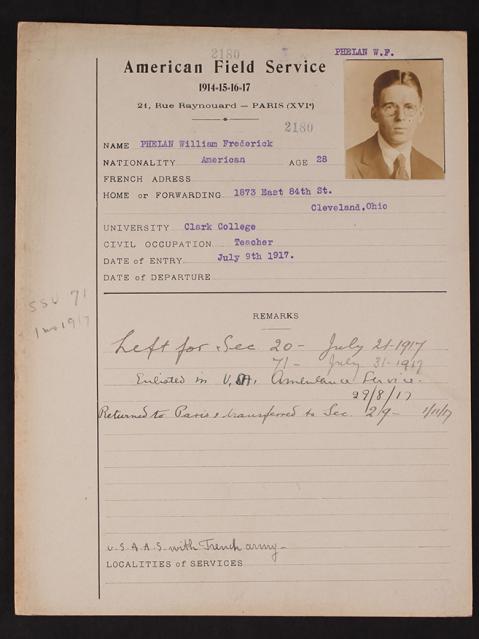 2180
PHELAN W.F.
American Field Service
1914-15-16-17
21, Rue Raynouard — PARIS (XVIe)
2180
NAME PHELAN William Frederick
NATIONALITY American AGE 28
FRENCH ADRESS
HOME or FORWARDING 1873 East 84th St.
Cleveland,Ohio
UNIVERSITY Clark College
CIVIL OCCUPATION Teacher
DATE of ENTRY July 9th 1917.
DATE of DEPARTURE
SSU 71
1 mo 1917
REMARKS
Left for Sec 20 - July 21-1917
71 - July 31-1917
Enlisted in U.S.A. Ambulance Service.
29/8/17
Returned to Paris & transferred to Sec. 29 - 1/11/17
U.S.A.A.S. with French army -
LOCALITIES of SERVICES